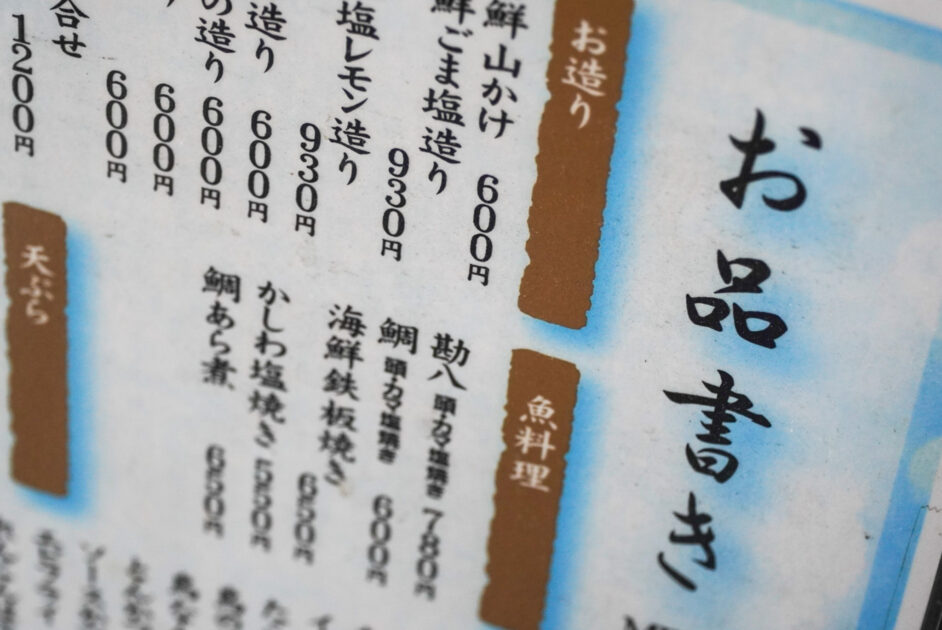 お品書き
お造り
鮮山かけ 600円
鮮ごま塩造り 930円
塩レモン造り 930円
造り 600円
の造り 600円
600円
600円
合せ 1200円
魚料理
勘八 頭・カマ塩焼き 780円
鯛 頭・カマ塩焼き 600円
海鮮鉄板焼き 650円
かしわ塩焼き 550円
鯛あら煮 650円
天ぷら